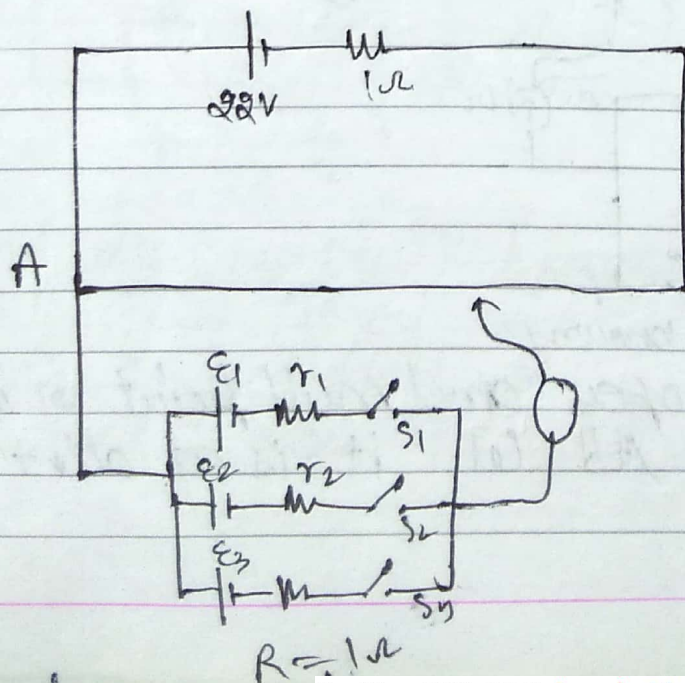 22V
1Ω
A
ε1 r1
S1
ε2 r2
S2
ε3
S3
R = 1Ω